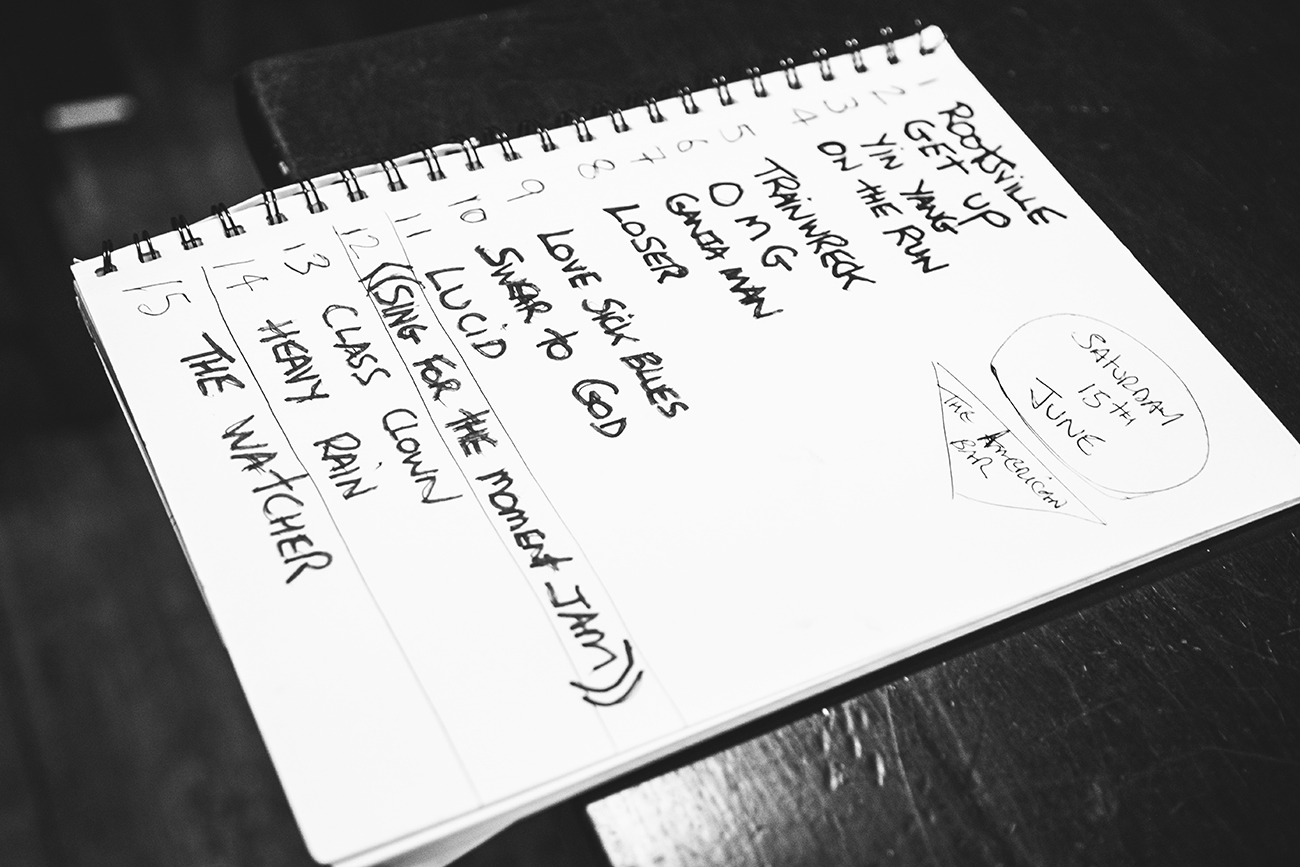 1 ROOTSVILLE
2 GET UP
3 YIN YANG
4 ON THE RUN
5 TRAINWRECK
6 O M G
7 GANJA MAN
8 LOSER
9 LOVE SICK BLUES
10 SWEAR TO GOD
11 LUCID
12 ((SING FOR THE MOMENT JAM))
13 CLASS CLOWN
14 HEAVY RAIN
15 THE WATCHER
SATURDAY
15TH
JUNE
THE AMERICAN
BAR